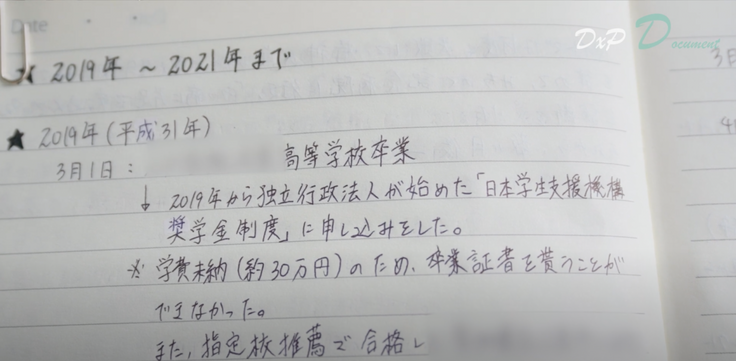 Date
DxP Document
★ 2019年 ~ 2021年まで
★ 2019年(平成31年)
3月1日: 高等学校卒業
↓ 2019年から独立行政法人が始めた「日本学生支援機構
奨学金制度」に申し込みをした。
※ 学費未納(約30万円)のため、卒業証書を貰うことが
できなかった。
また、指定校推薦で合格し
3日